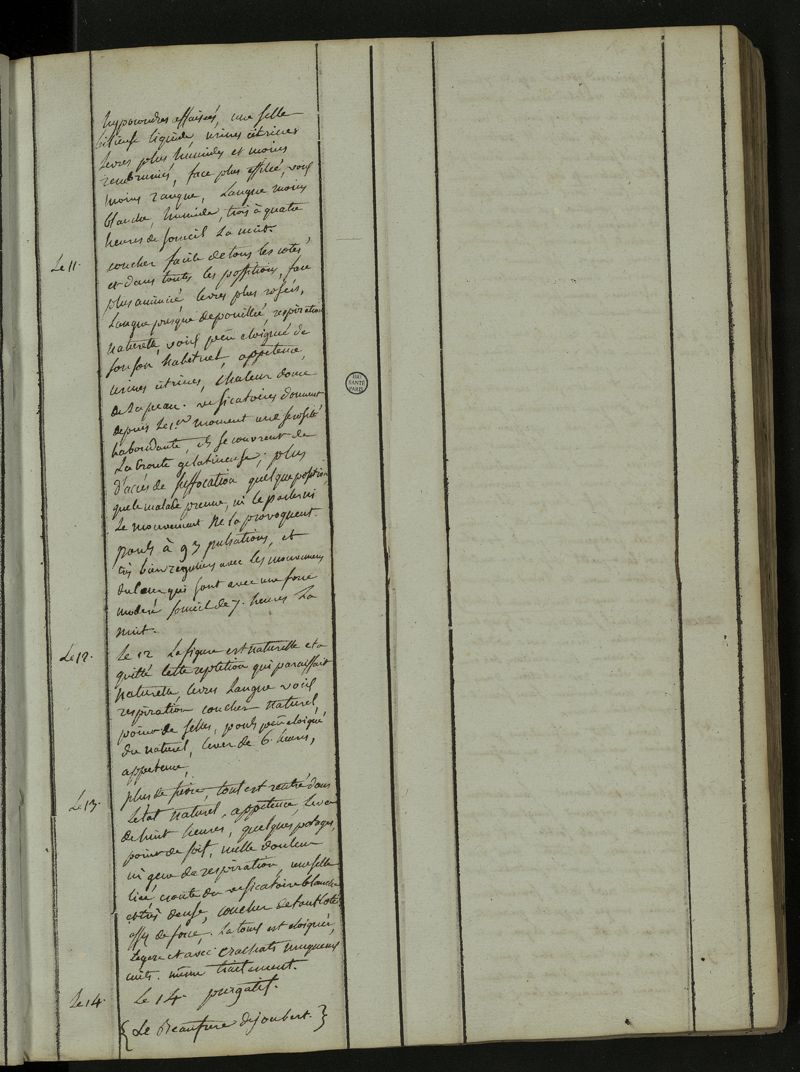 hypocondres affaissés, une selle
bilieuse liquide, urines citrines
levres plus humides et moins
rembrunies, face plus effilée, voix
moins rauque, Langue moins
blanche, humide, trois à quatre
heures de someil La nuit.
Le 11. coucher facile de tous les cotés
et dans toutes les positions, face
plus animée levres plus rosées,
Langue presque depouillée, respiration
naturelle voix peu eloignée de
son son habituel, appetence,
urines citrines, chaleur douce
de La peau. vesicatoires donnent
depuis Le 1er moment une serosité
habondante, ils se couvrent de
La croute gelatineuse; plus
d'accés de suffocation quelque position
que le malade prenne, ni le parler ni
Le mouvement ne la provoquent.
pouls à 93 pulsations, et
très bien reguliers avec les mouvemens
du coeur qui sont avec une force
moderé someil de 7. heures La
nuit.
Le 12. Le 12 La figure est naturelle et a
quitté cette repletion qui paraissait
naturelle, levres Langue voix
respiration coucher naturel,
point de selles, pouls peu eloigné
du naturel, lever de 6 heures,
appetence,
Le 13. plus de fievre, tout est rentré dans
L'etat naturel, appetence, Lever
de huit heures, quelques potages,
point de soif, nulle douleur
ni gene de respiration, une selle
liée, croute du vesicatoire blanche
et très dense, coucher de tout coté
assez de force. La toux est eloignée,
Legere et avec crachats muqueux
cuits. même traitement.
Le 14. Le 14. purgatif.
{ Le Beaufrere de joubert. }
BIU
SANTÉ
PARIS